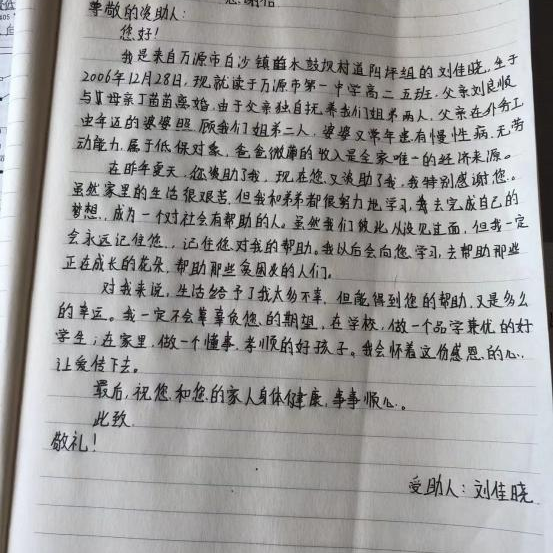 感谢信
尊敬的资助人:
您好!
我是来自万源市白沙镇曲水鼓坝村道阳坪组的刘佳晓,生于
2006年12月28日,现就读于万源市第一中学高二五班.父亲刘良顺
与母亲丁茴茴离婚.由于父亲独自抚养我们姐弟两人,父亲在外务工
由年迈的婆婆照顾我们姐弟二人,婆婆又常年患有慢性病,无劳
动能力,属于低保对象,爸爸微薄的收入是全家唯一的经济来源。
在昨年夏天,你资助了我,现在您又资助了我,我特别感谢您。
虽然家里的生活很艰苦,但我和弟弟都很努力地学习,去完成自己的
梦想,成为一个对社会有帮助的人。虽然我们彼此从没见过面,但我一定
会永远记住您,记住您对我的帮助。我以后会向您学习,去帮助那些
正在成长的花朵,帮助那些贫困的人们。
对我来说,生活给予了我太多不幸,但能得到您的帮助,又是多么
的幸运。我一定不会辜负您的期望,在学校,做一个品学兼优的好
学生;在家里,做一个懂事、孝顺的好孩子。我会怀着这份感恩的心,
让爱传下去。
最后,祝您和您的家人身体健康,事事顺心。
此致
敬礼!
受助人:刘佳晓